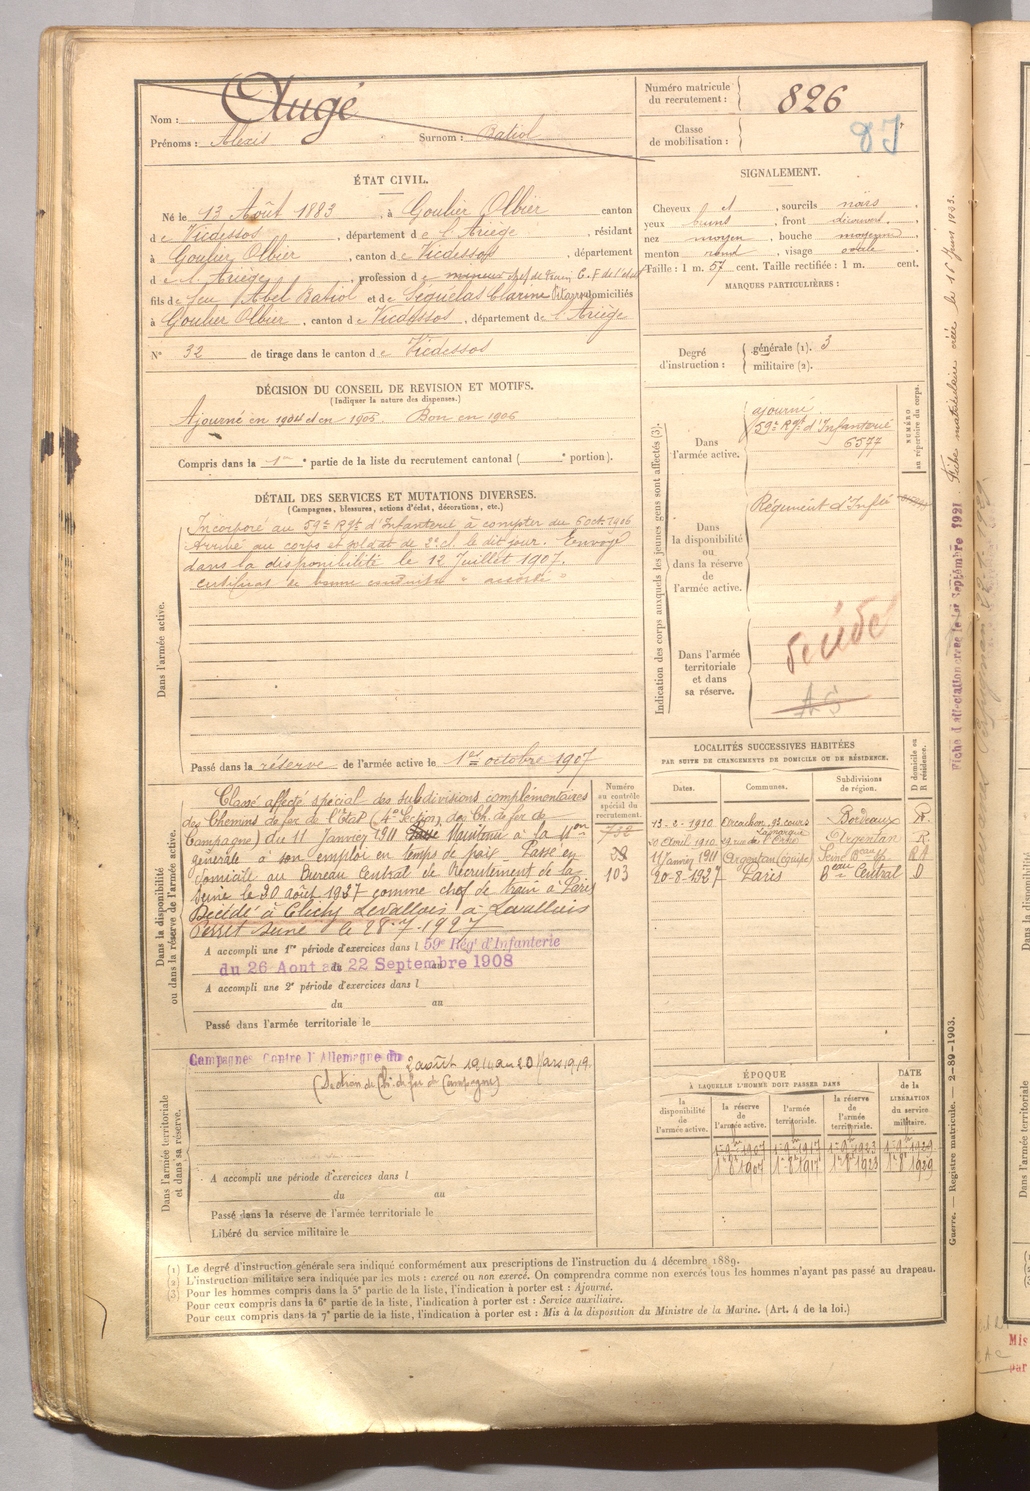 Nom : Augé
Prénoms : Alexis Surnom : Batiol
Numéro matricule du recrutement : 826
Classe de mobilisation :
ÉTAT CIVIL.
Né le 13 Août 1883, à Goulier Olbier canton
de Vicdessos, département de l'Ariège, résidant
à Goulier Olbier, canton de Vicdessos département
de l'Ariège, profession de mineur chef de train C. F. de l'état
fils de feu Abel Batiol et de Séguélas Clarine domiciliés
à Goulier Olbier, canton de Vicdessos, département de l'Ariège
N° 32 de tirage dans le canton de Vicdessos
SIGNALEMENT.
Cheveux et, sourcils noirs,
yeux bruns, front découvert,
nez moyen, bouche moyenne,
menton rond, visage ovale.
Taille : 1 m. 57 cent. Taille rectifiée : 1 m. cent.
MARQUES PARTICULIÈRES :
Degré d'instruction : générale (1). 3
militaire (2).
DÉCISION DU CONSEIL DE REVISION ET MOTIFS.
(Indiquer la nature des dispenses.)
Ajourné en 1904 et en 1905. Bon en 1906
Compris dans la 1re partie de la liste du recrutement cantonal ( e portion).
DÉTAIL DES SERVICES ET MUTATIONS DIVERSES.
(Campagnes, blessures, actions d'éclat, décorations, etc.)
Dans l'armée active.
Incorporé au 59e Rgt d'Infanterie à compter du 6 oct. 1906
Arrivé au corps et soldat de 2e cl. le dit jour. Envoyé
dans la disponibilité le 12 Juillet 1907.
certificat de bonne conduite " accordé "
Passé dans la réserve de l'armée active le 1er octobre 1907
Indication des corps auxquels les jeunes gens sont affectés (3).
NUMÉRO au répertoire du corps.
Dans l'armée active.
ajourné.
59e Rgt d'Infanterie
6577
Dans la disponibilité ou dans la réserve de l'armée active.
Régiment d'Inf
Dans l'armée territoriale et dans sa réserve.
décédé
Dans la disponibilité ou dans la réserve de l'armée active.
Numéro au contrôle spécial du recrutement.
Classé affecté spécial des subdivisions complémentaires
des Chemins de fer de l'Etat (4e Section des Ch. de fer de
Campagne) du 11 Janvier 1911 Maintenu à la
générale à son emploi en temps de paix _ Passé en
domicile au Bureau Central de Recrutement de la 103
Seine le 20 août 1927 comme chef de train à Paris
Décédé à Clichy Levallois à Levallois
Perret Seine le 28-7-1927
A accompli une 1re période d'exercices dans l 59e Rég d'Infanterie
du 26 Aout au 22 Septembre 1908
A accompli une 2e période d'exercices dans l
du au
Passé dans l'armée territoriale le
LOCALITÉS SUCCESSIVES HABITÉES
PAR SUITE DE CHANGEMENTS DE DOMICILE OU DE RÉSIDENCE.
Dates. Communes. Subdivisions de région. D domicile ou R résidence.
13-2-1910 Arcachon, 93 cours Lamarque Bordeaux R.
20 Avril 1910 Argentan R.
11 Janvier 1911 Argentan
20-8-1927 Paris Beau Central D
Dans l'armée territoriale et dans sa réserve.
Campagnes Contre l'Allemagne du 2 août 1914 au 20 Mars 1919.
(Section de Ch. de fer de Campagne)
A accompli une période d'exercices dans l
du au
Passé dans la réserve de l'armée territoriale le
Libéré du service militaire le
ÉPOQUE
À LAQUELLE L'HOMME DOIT PASSER DANS
la disponibilité de l'armée active. la réserve de l'armée active. l'armée territoriale. la réserve de l'armée territoriale. DATE de la LIBÉRATION du service militaire.
(1) Le degré d'instruction générale sera indiqué conformément aux prescriptions de l'instruction du 4 décembre 1889.
(2) L'instruction militaire sera indiquée par les mots : exercé ou non exercé. On comprendra comme non exercés tous les hommes n'ayant pas passé au drapeau.
(3) Pour les hommes compris dans la 5e partie de la liste, l'indication à porter est : Ajourné.
Pour ceux compris dans la 6e partie de la liste, l'indication à porter est : Service auxiliaire.
Pour ceux compris dans la 7e partie de la liste, l'indication à porter est : Mis à la disposition du Ministre de la Marine. (Art. 4 de la loi.)
Guerre. — Registre matricule. — 2-89-1903.
Mis
par